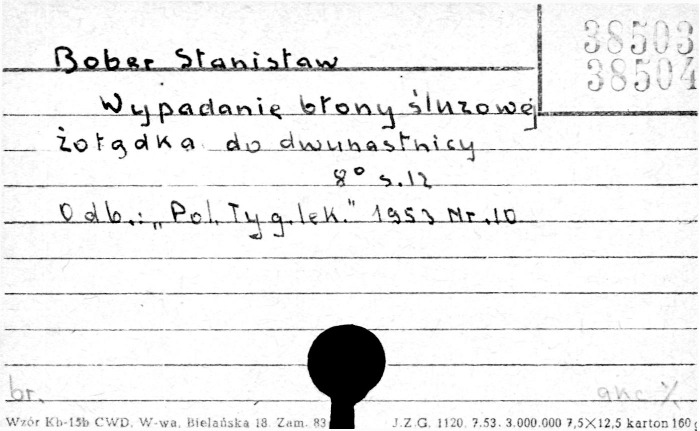 38503
38504
Bober Stanisław
Wypadanie błony śluzowej
żołądka do dwunastnicy
8° s.12
Odb.: „Pol. Tyg. lek." 1953 Nr. 10
br.
Wzór Kb-15b CWD, W-wa, Bielańska 18. Zam. 83
J.Z.G. 1120. 7.53. 3.000.000 7,5×12,5 karton 160